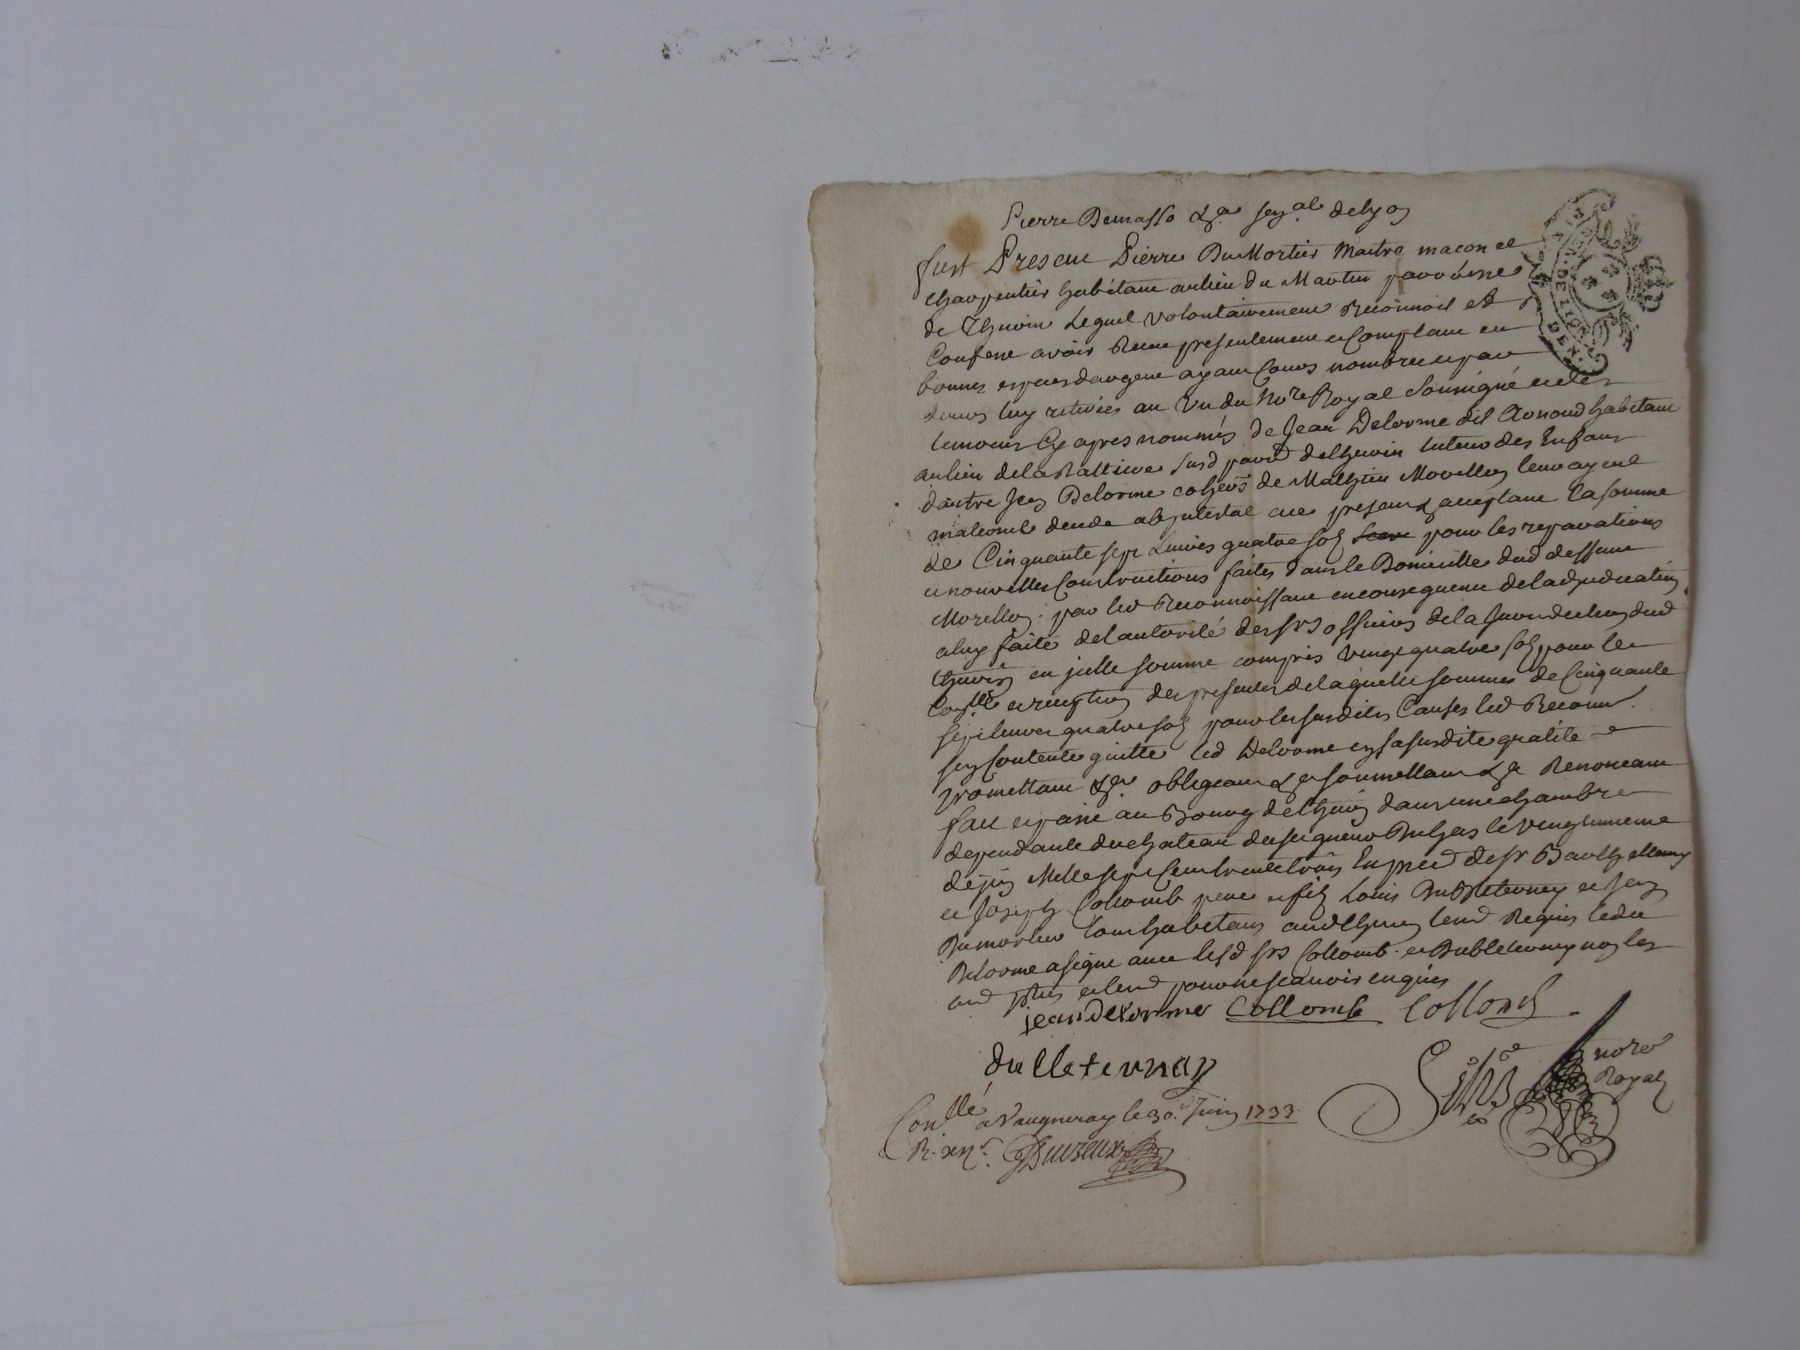 Pierre Demasso &a sen.al de lyon
fust Presen Pierre DuMortier Maitre macon et
charpentier habitant au lieu du Martin parroisse
de Thurin Lequel volontairement Reconnoit et
Confene avoir Receu presentement et Comptant en
bonnes especes dargent ayant Cours nombrée et par
devers luy retirées au vu du No.re Royal Soussigné et des
temoins Cy apres nommés de Jean Delorme dit habitant
au lieu de la Rattiere susd parr.e de thurin tuteur des Enfans
dautre Jean Delorme cohers de Mathieu Morellon leur ayeul
maternel decede abjntestat cee present & acceptant la somme
de Cinquante sept Livres quatre sols pour les reparations
et nouvelles Constructions faites dans le Domicille dud deffunt
Morellon par led Reconnoissant en consequence de ladjudication
a luy faite de lautorité des srs officiers de la Jurisdiction dud
thurin en jcelle somme compris vingt quatre sols pour le
Con.lle et reception des presentes de laquelle somme de Cinquante
sept livres quatre sols pour les susdites Causes led Reconn.
sen Contente quitte led Delorme en sa susdite qualité
promettant &a obligeant & a soumettant & a Renoncant
fait et passé au Bourg de thurin dans une chambre
dependante du chateau du seigneur le vingtunieme
de juin Mille sept Cent trente trois En pnce de sr Barthellemy
et Joseph Collomb pere et fils Louis Dubleternay et Jean
Dumortier tous habitans aud thurin tem.d Requis ledit
Delorme a signe avec lesd srs Collomb et Dubleternay non les
aut pties et tem.d pour ne scavoir enquis
jean delorme Collomb Collomb
dulleternay
no.re
Royal
Con.llé a Vaugneray le 30.e Juin 1733
R.